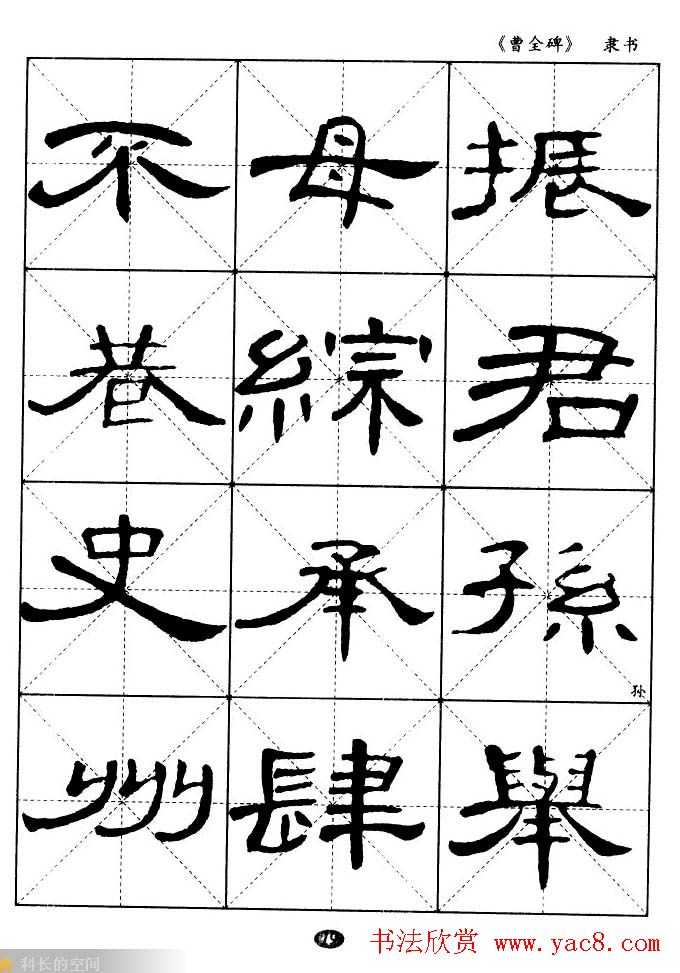 《曹全碑》 隶书
振君孫舉
孙
母綜承肆
不巷史州
书法欣赏 www.yac8.com
科长的空间